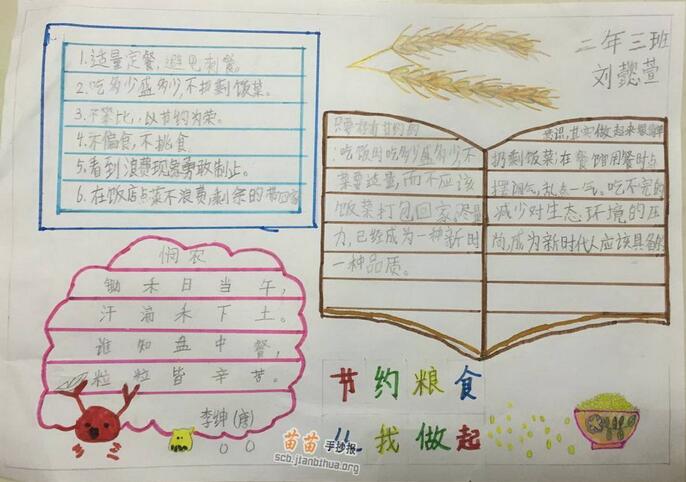 1.适量定餐,避免剩餐。
2.吃多少盛多少,不扔剩饭菜。
3.不攀比,以节约为荣。
4.不偏食,不挑食
5.看到浪费现象勇敢制止。
6.在饭店点菜不浪费,剩余的带回家
二年三班
刘懿萱
只要有节约的
:吃饭时吃多少盛多少,不
菜要适量,而不应该
饭菜打包回家,尽量
力,已经成为一种新时
一种品质。
意识,其实做起来很简单
扔剩饭菜;在餐馆用餐时点
摆阔气,乱点一气。吃不完的
减少对生态环境的压
尚,成为新时代人应该具备的
悯农
锄禾日当午,
汗滴禾下土。
谁知盘中餐,
粒粒皆辛苦。
李绅(唐)
节约粮食
从我做起
苗苗手抄报
scb.jianbihua.org